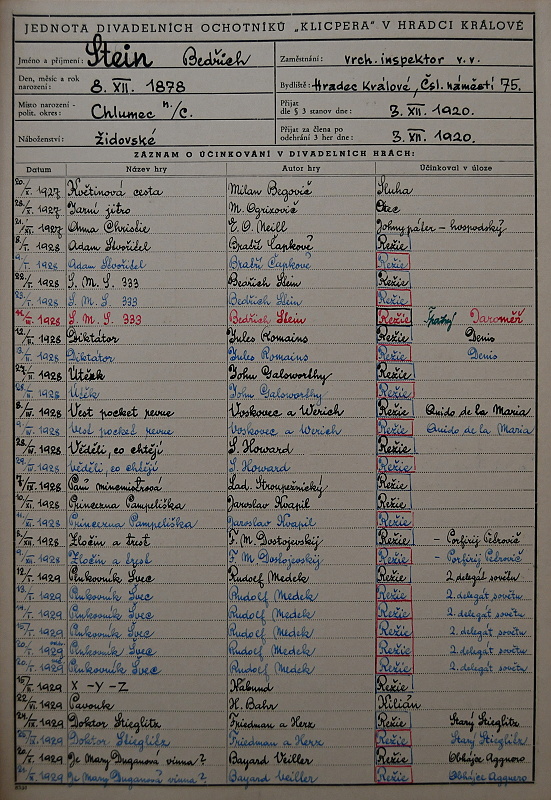 JEDNOTA DIVADELNÍCH OCHOTNÍKŮ „KLICPERA" V HRADCI KRÁLOVÉ
Jméno a příjmení: Stein Bedřich
Zaměstnání: vrch. inspektor v.v.
Den, měsíc a rok narození: 8. XII. 1878
Bydliště: Hradec Králové, Čsl. náměstí 75.
Místo narození - polit. okres: Chlumec n/C.
Přijat dle § 3 stanov dne: 3. XII. 1920.
Náboženství: židovské
Přijat za člena po odehrání 3 her dne: 3. XII. 1920.
ZÁZNAM O ÚČINKOVÁNÍ V DIVADELNÍCH HRÁCH:
Datum Název hry Autor hry Účinkoval v úloze
1927 Květinová cesta Milan Begovič Sluha
1927 Jarní jitro M. Ogrixovič Otec
1927 Anna Christie E. O. Neill Johny páter - hospodský
1928 Adam Stvořitel Bratří Čapkové Režie
1928 Adam Stvořitel Bratří Čapkové Režie
1928 S. M. S. 333 Bedřich Stein Režie
1928 S. M. S. 333 Bedřich Stein Režie
1928 S. M. S. 333 Bedřich Stein Režie Jaroměř
1928 Diktátor Jules Romains Režie Denis
1928 Diktátor Jules Romains Režie Denis
1928 Útěk John Galsworthy Režie
1928 Útěk John Galsworthy Režie
1928 Vest pocket revue Voskovec a Werich Režie Quido de la Maria
1928 Vest pocket revue Voskovec a Werich Režie Quido de la Maria
1928 Věděli, co chtějí S. Howard Režie
1928 Věděli, co chtějí S. Howard Režie
1928 Paní mincmistrová Lad. Stroupežnický Režie
1928 Princezna Pampeliška Jaroslav Kvapil Režie
1928 Princezna Pampeliška Jaroslav Kvapil Režie
1928 Zločin a trest F. M. Dostojevskij Režie - Porfirij Petrovič
1928 Zločin a trest F. M. Dostojevskij Režie - Porfirij Petrovič
1929 Plukovník Švec Rudolf Medek Režie 2. delegát sovětu
1929 Plukovník Švec Rudolf Medek Režie 2. delegát sovětu
1929 Plukovník Švec Rudolf Medek Režie 2. delegát sovětu
1929 Plukovník Švec Rudolf Medek Režie 2. delegát sovětu
1929 Plukovník Švec Rudolf Medek Režie 2. delegát sovětu
1929 Plukovník Švec Rudolf Medek Režie 2. delegát sovětu
1929 X - Y - Z Klabund Režie
1929 Pavouk H. Bahr Kilián
1929 Doktor Stieglitz Friedman a Herz Režie Starý Stieglitz
1929 Doktor Stieglitz Friedman a Herz Režie Starý Stieglitz
1929 Je Mary Duganová vinna? Bayard Veiller Režie Obhájce
1929 Je Mary Duganová vinna? Bayard Veiller Režie Obhájce